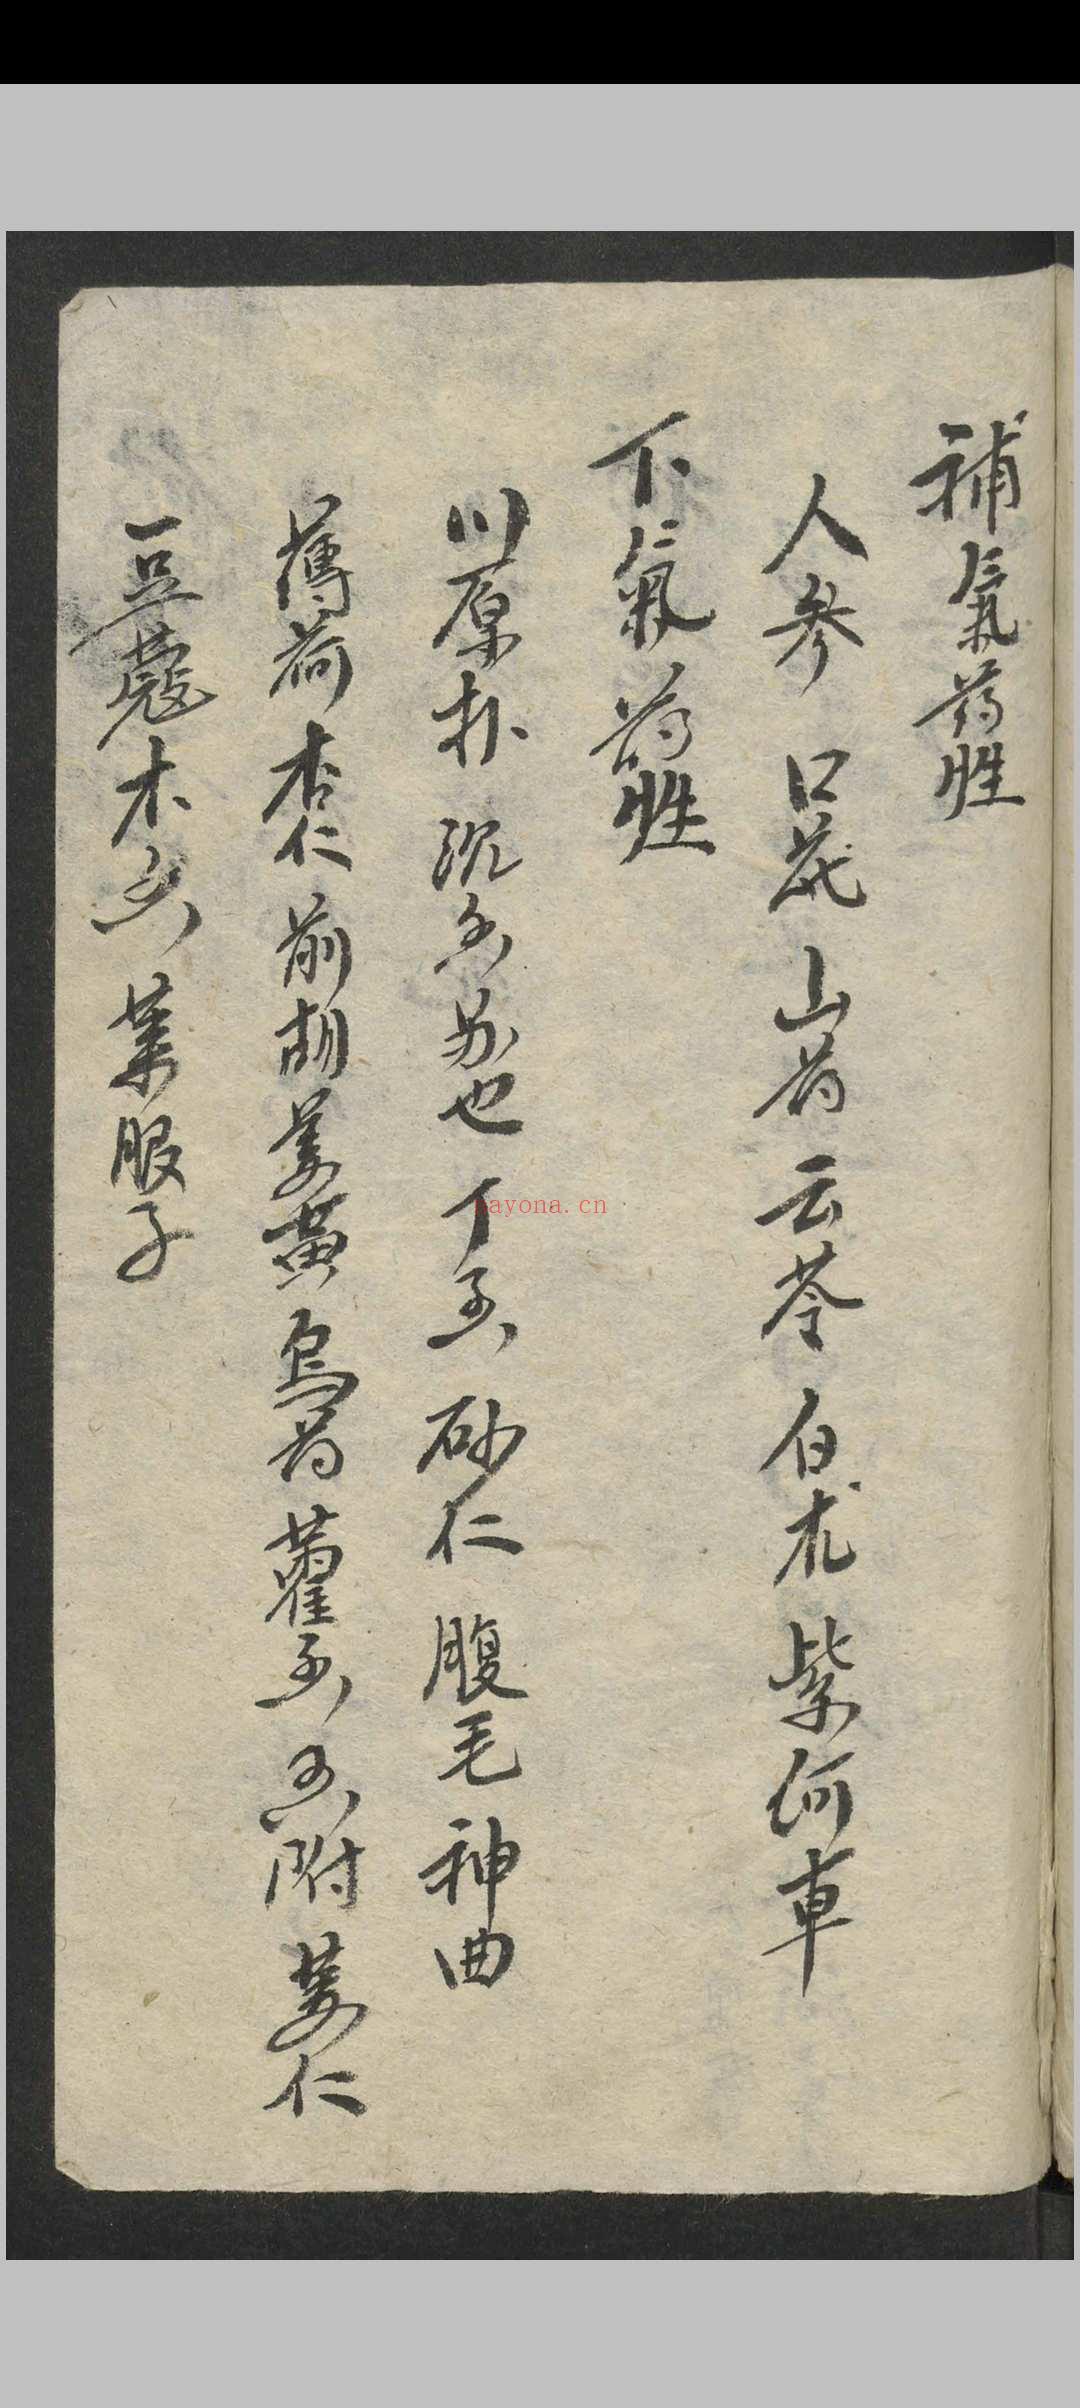 補氣药性
人参 口芪 山药 云苓 白朮 紫何車
下氣药性
川厚朴 沉香 苏也 丁香 砂仁 腹毛 神曲
薄荷 杏仁 前胡 姜黄 烏药 藿香 香附 蒌仁
豆蔻 木香 莱服子
nayona.cn